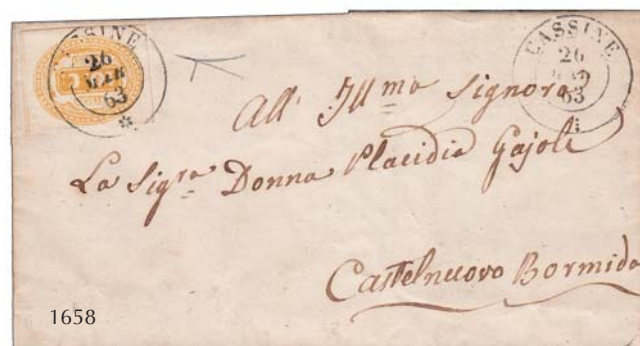 CASSINE
26
MAR
63
CASSINE
26
MAR
63
All' Ill.ma Signora
La Sig.ra Donna Placidia Gajoli
Castelnuovo Bormida
1658